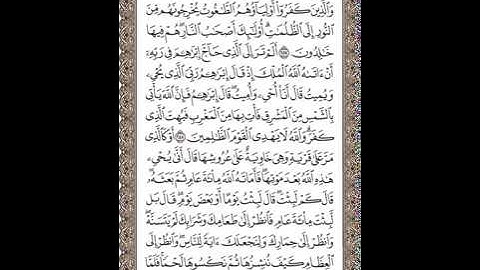 وَٱلَّذِينَ كَفَرُوٓا۟ أَوْلِيَآؤُهُمُ ٱلطَّـٰغُوتُ يُخْرِجُونَهُم مِّنَ
ٱلنُّورِ إِلَى ٱلظُّلُمَـٰتِ أُو۟لَـٰٓئِكَ أَصْحَـٰبُ ٱلنَّارِ هُمْ فِيهَا
خَـٰلِدُونَ ۝ أَلَمْ تَرَ إِلَى ٱلَّذِى حَآجَّ إِبْرَٰهِـۧمَ فِى رَبِّهِۦٓ
أَنْ ءَاتَىٰهُ ٱللَّهُ ٱلْمُلْكَ إِذْ قَالَ إِبْرَٰهِـۧمُ رَبِّىَ ٱلَّذِى يُحْىِۦ
وَيُمِيتُ قَالَ أَنَا۠ أُحْىِۦ وَأُمِيتُ قَالَ إِبْرَٰهِـۧمُ فَإِنَّ ٱللَّهَ يَأْتِى
بِٱلشَّمْسِ مِنَ ٱلْمَشْرِقِ فَأْتِ بِهَا مِنَ ٱلْمَغْرِبِ فَبُهِتَ ٱلَّذِى
كَفَرَ وَٱللَّهُ لَا يَهْدِى ٱلْقَوْمَ ٱلظَّـٰلِمِينَ ۝ أَوْ كَٱلَّذِى
مَرَّ عَلَىٰ قَرْيَةٍ وَهِىَ خَاوِيَةٌ عَلَىٰ عُرُوشِهَا قَالَ أَنَّىٰ يُحْىِۦ
هَـٰذِهِ ٱللَّهُ بَعْدَ مَوْتِهَا فَأَمَاتَهُ ٱللَّهُ مِا۟ئَةَ عَامٍ ثُمَّ بَعَثَهُۥ
قَالَ كَمْ لَبِثْتَ قَالَ لَبِثْتُ يَوْمًا أَوْ بَعْضَ يَوْمٍ قَالَ بَل
لَّبِثْتَ مِا۟ئَةَ عَامٍ فَٱنظُرْ إِلَىٰ طَعَامِكَ وَشَرَابِكَ لَمْ يَتَسَنَّهْ
وَٱنظُرْ إِلَىٰ حِمَارِكَ وَلِنَجْعَلَكَ ءَايَةً لِّلنَّاسِ وَٱنظُرْ إِلَى
ٱلْعِظَامِ كَيْفَ نُنشِزُهَا ثُمَّ نَكْسُوهَا لَحْمًا فَلَمَّا